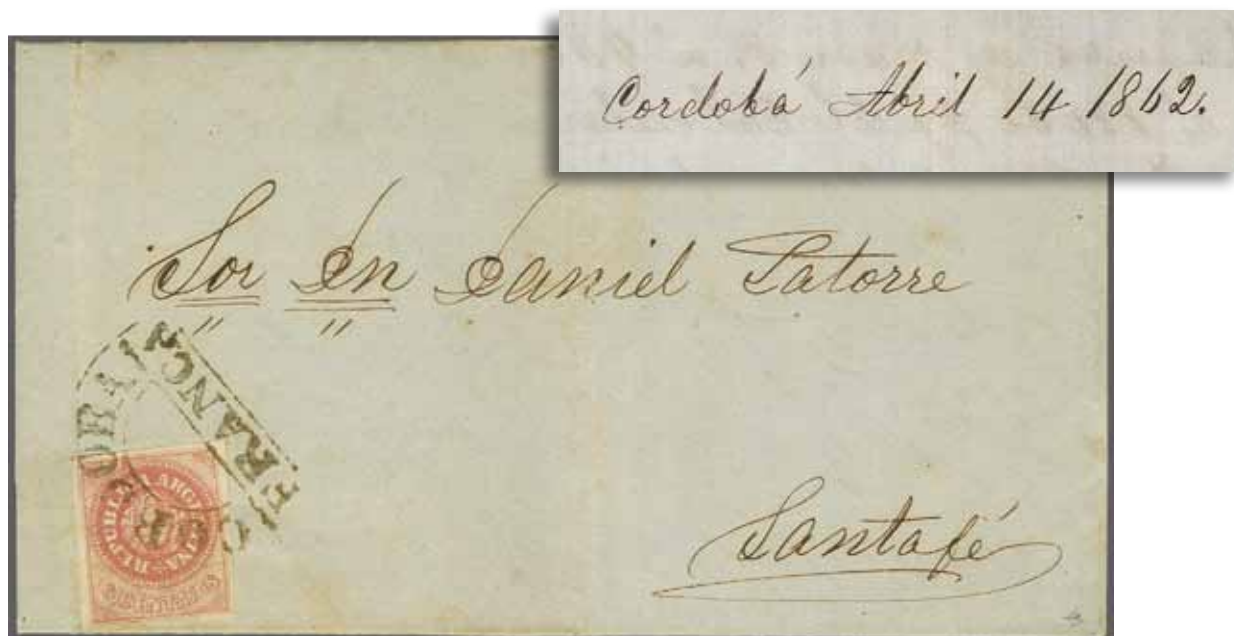 Cordobá Abril 14 1862.
Sor Dn Daniel Latorre
FRANCA
Santafé